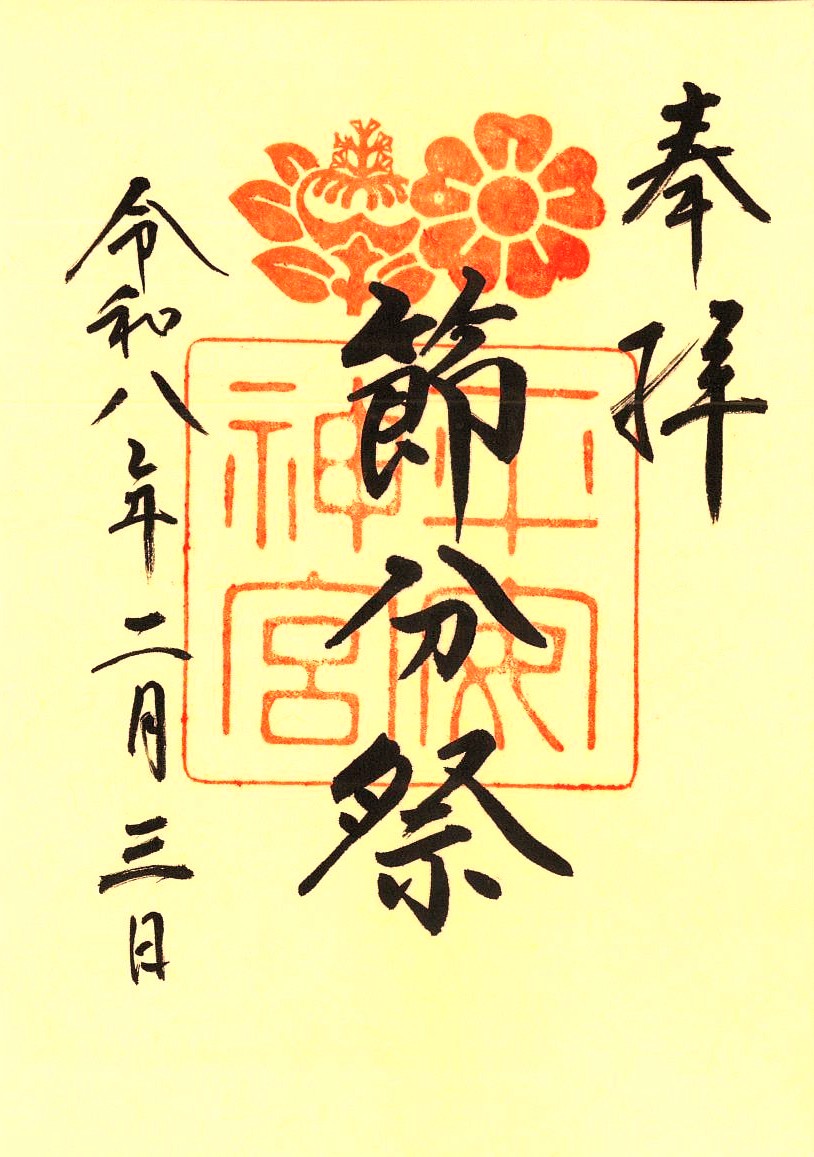 奉拝
節分祭
神宮
令和八年二月三日